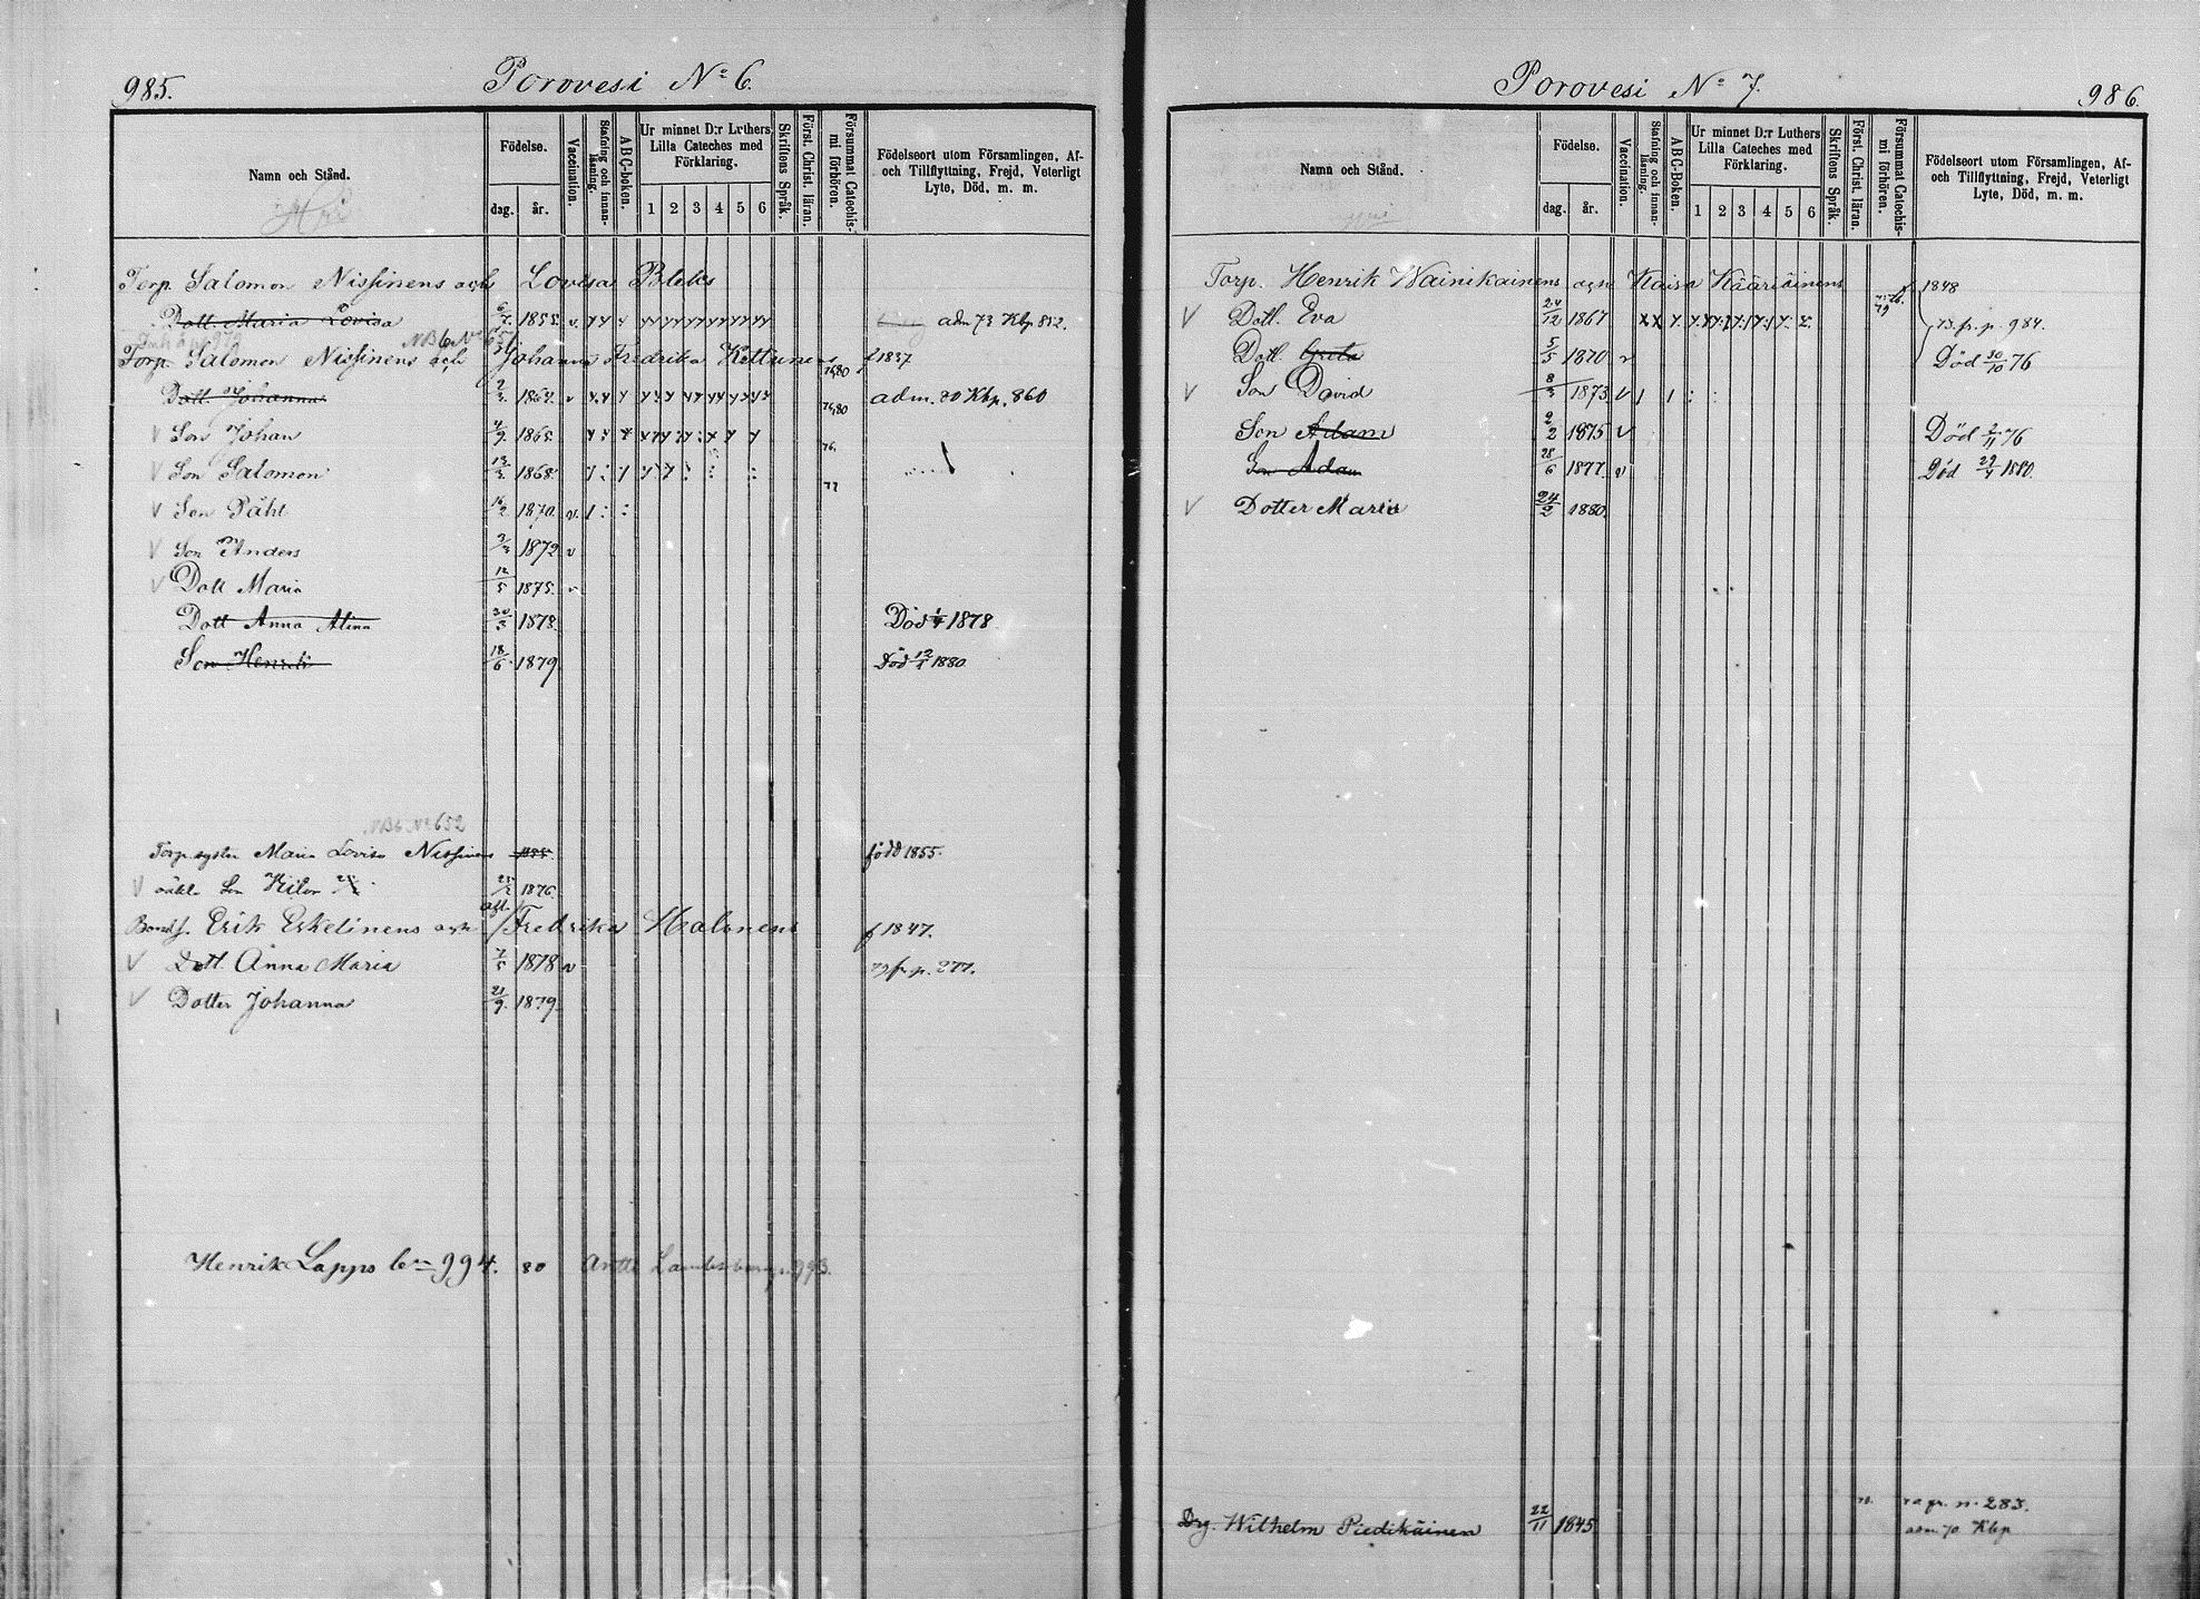 985.
Porovesi No 6.
Namn och Stånd.
Födelse.
dag.
år.
Vaccination.
Stafning och innan-läsning.
ABC-boken.
Ur minnet D:r Luthers
Lilla Cateches med
Förklaring.
1 2 3 4 5 6
Skriftens Språk.
Först. Christ. läran.
Försummat Catechis-mi förhören.
Födelseort utom Församlingen, Af-
och Tillflyttning, Frejd, Veterligt
Lyte, Död, m. m.
Torp. Salomon Nissinens och Lovisa Bleks
Dott. Maria Lovisa 6/7. 1855. v. adm 73 Kbp 852.
NB 6 No 651
Torp. Salomon Nissinens och Johanna Fredrika Kettunens 76,80 f 1837
Dott. Johanna 2/3. 1862. v 76,80 adm. 80 Kbp. 860
V Son Johan 4/9. 1865. 76.
V Son Salomon 13/3. 1868. 77
V Son Påhl 16/2 1870. v.
V Son Anders 3/3 1872 v
V Dott Maria 12/5 1875. v
Dott Anna Alina 30/3 1878. Död 1/4 1878
Son Henrik 18/6. 1879 Död 12/1 1880
NB6 No 652
Torp. syster Maria Lovisa Nissinens 1855. född 1855.
V oäkta Son 1876
Bondf. Erik Eskelinens och Fredrika Halonens f 1847.
V Dott. Anna Maria 7/5 1878 v 79 fr. p. 277.
V Dotter Johanna 21/9. 1879
Henrik Lapps 994. 80 Antti 993.
Porovesi No 7.
986.
Namn och Stånd.
Födelse.
dag.
år.
Vaccination.
Stafning och innan-läsning.
ABC-Boken.
Ur minnet D:r Luthers
Lilla Cateches med
Förklaring.
1 2 3 4 5 6
Skriftens Språk.
Först. Christ. läran.
Försummat Catechis-mi förhören.
Födelseort utom Församlingen, Af-
och Tillflyttning, Frejd, Veterligt
Lyte, Död, m. m.
Torp. Henrik Wainikainens och Kaisa Kääriäinens f 1848
V Dotl. Eva 24/12 1867 79 73. fr. p. 984.
Dotl. Greta 5/5 1870 v Död 30/10 76
V Son David 8/3 1873 v
Son Adam 2/2 1875 v Död 2/11 76
Son Adam 28/6 1877. v Död 29/4 1880.
V Dotter Maria 24/2 1880.
Drg. Wilhelm Piedikäinen 22/11 1845 fr. n. 283.
adm 70. Kbp